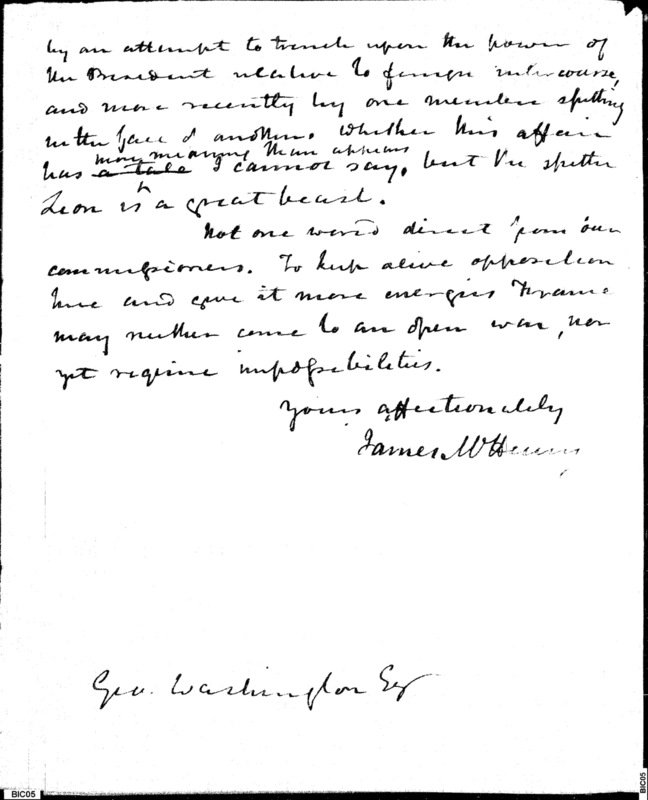 by an attempt to trench upon the power of
the President relative to foreign intercourse,
and more recently by one member spitting
in the face of another. Whether this affair
more meaning than appears
has a tale I cannot say, but the spitter
Lion is a great beast.
Not one word direct from our
commissioners. To keep alive opposition
here and give it more energies France
may neither come to an open war, nor
yet require impossibilities.
Yours affectionately
James McHenry
Geo. Washington Esq
BIC05
BIC05